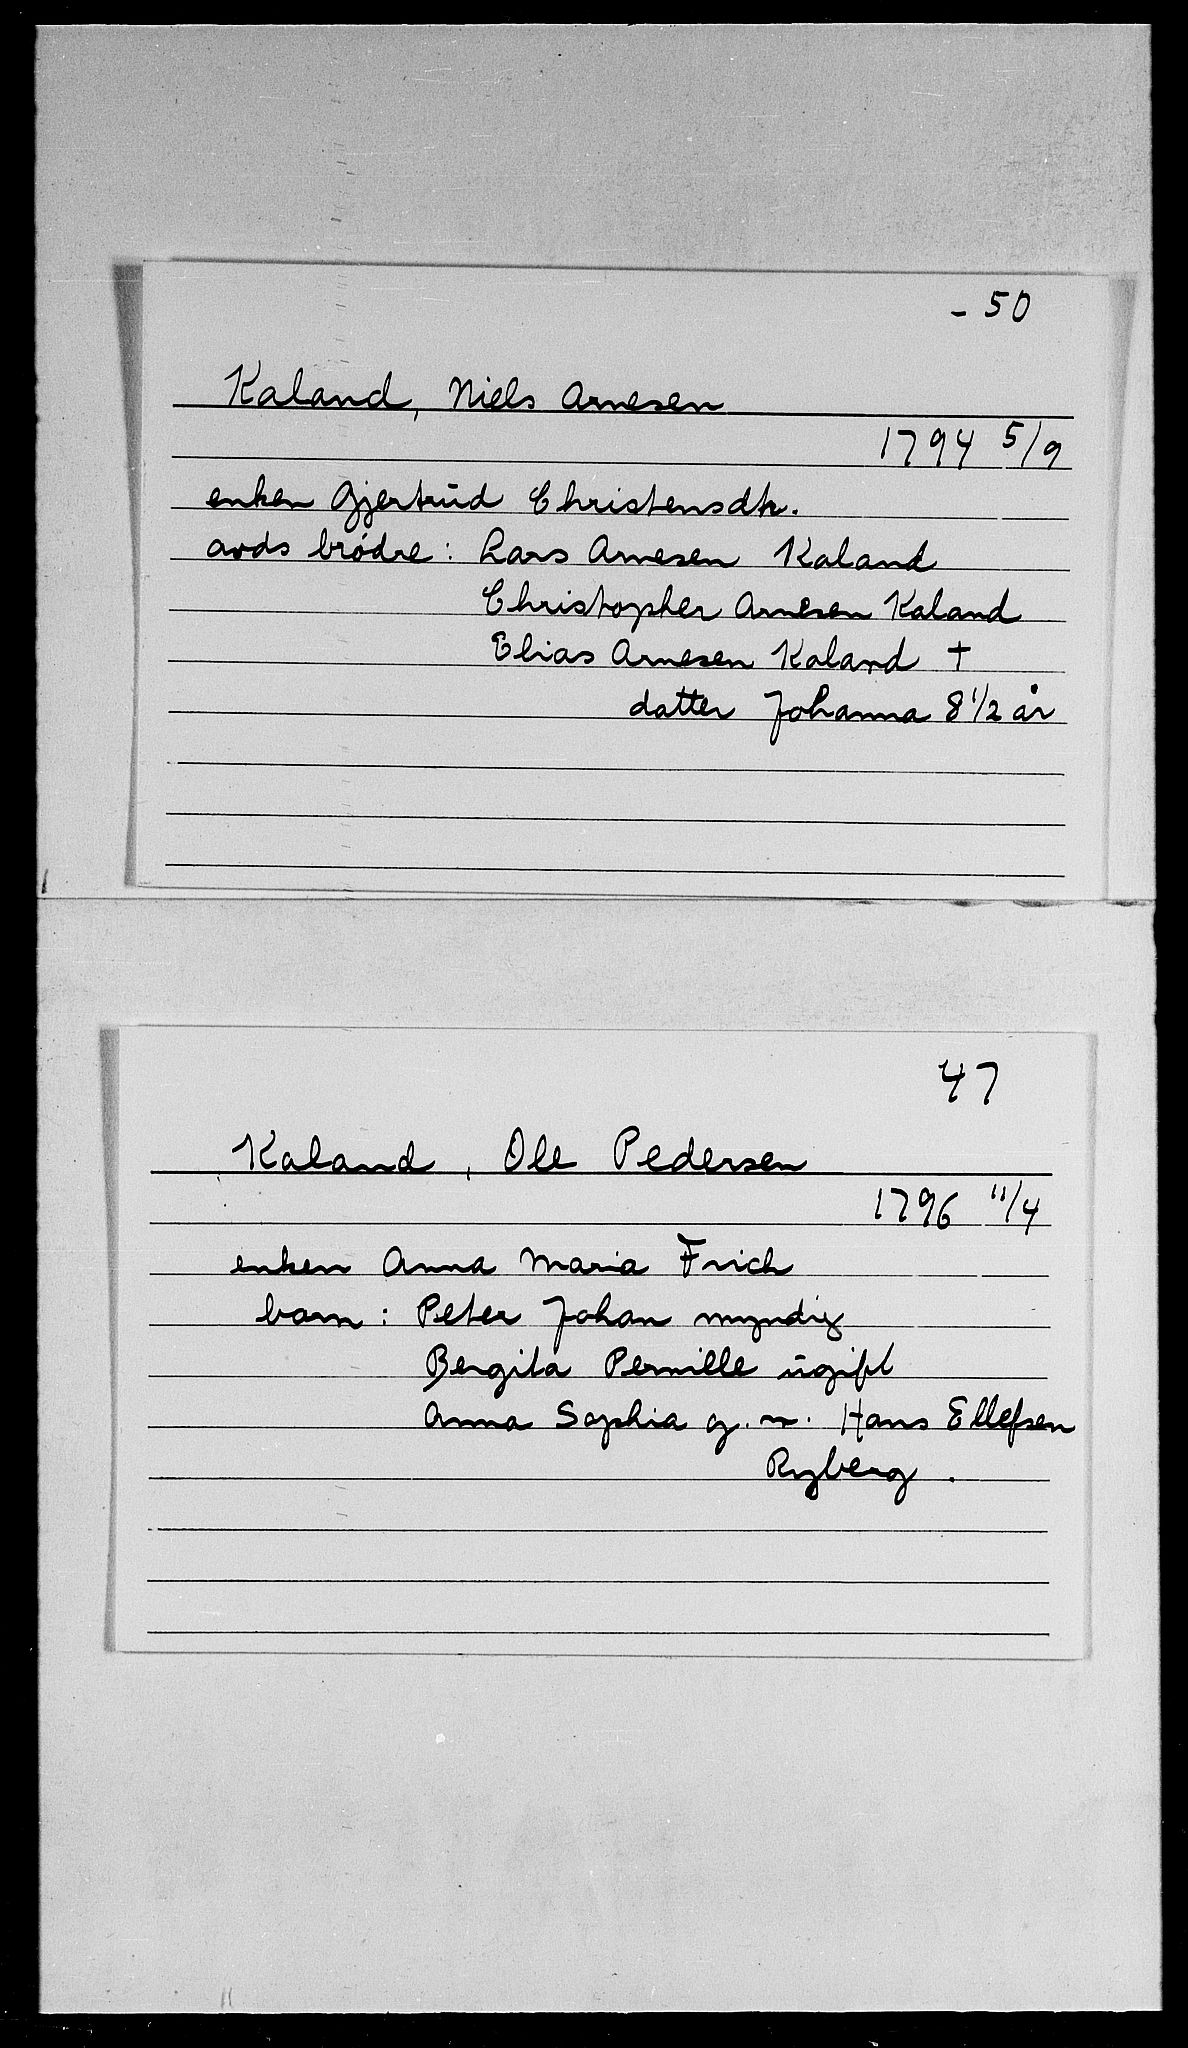 - 50
Kaland, Niels Arnesen
1794 5/9
enken Gjertrud Christensdtr.
avds brødre: Lars Arnesen Kaland
Christopher Arnesen Kaland
Elias Arnesen Kaland †
datter Johanna 8 1/2 år
47
Kaland, Ole Pedersen
1796 11/4
enken Anna Maria Frich
barn: Peter Johan myndig
Bergita Pernille ugift
Anna Sophia g. m. Hans Ellefsen
Ryberg.